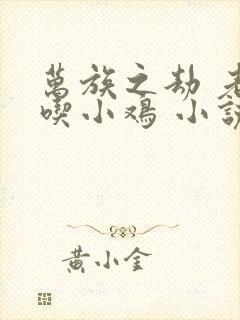 萬族之劫 老
喫小鸡 小說
黃小金